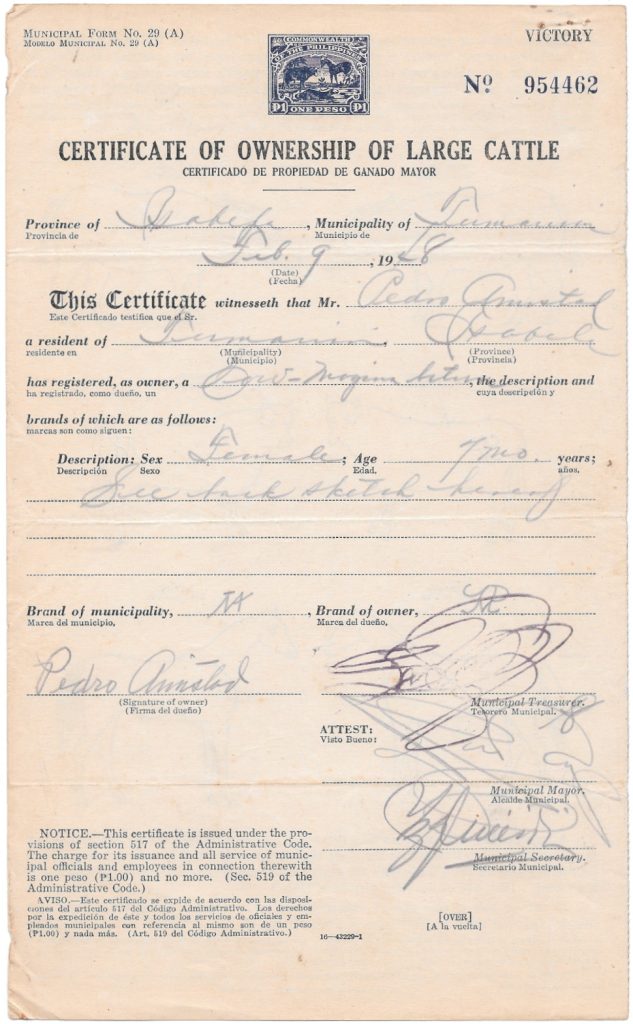 MUNICIPAL FORM NO. 29 (A)
MODELO MUNICIPAL NO. 29 (A)
COMMONWEALTH
OF THE PHILIPPINES
₱1 ONE PESO ₱1
VICTORY
Nº 954462
CERTIFICATE OF OWNERSHIP OF LARGE CATTLE
CERTIFICADO DE PROPIEDAD DE GANADO MAYOR
Province of Isabela, Municipality of Tumauini
Provincia de Municipio de
Feb. 9, 19
(Date)
(Fecha)
This Certificate witnesseth that Mr. Pedro Amistad
Este Certificado testifica que el Sr.
a resident of Tumauini, Isabela
residente en (Municipality) (Province)
(Municipio) (Provincia)
has registered, as owner, a Cow, the description and
ha registrado, como dueño, un cuya descripción y
brands of which are as follows:
marcas son como siguen:
Description: Sex Female; Age 7 mo. years;
Descripción Sexo Edad. años.
See back sketch hereof
Brand of municipality, Brand of owner,
Marca del municipio, Marca del dueño,
Pedro Amistad
(Signature of owner)
(Firma del dueño)
Municipal Treasurer.
Tesorero Municipal.
ATTEST:
Visto Bueno:
Municipal Mayor.
Alcalde Municipal.
Municipal Secretary.
Secretario Municipal.
NOTICE.—This certificate is issued under the pro-
visions of section 517 of the Administrative Code.
The charge for its issuance and all service of munic-
ipal officials and employees in connection therewith
is one peso (₱1.00) and no more. (Sec. 519 of the
Administrative Code.)
AVISO.—Este certificado se expide de acuerdo con las disposi-
ciones del artículo 517 del Código Administrativo. Los derechos
por la expedición de éste y todos los servicios de oficiales y em-
pleados municipales con referencia al mismo son de un peso
(₱1,00) y nada más. (Art. 519 del Código Administrativo.)
[OVER]
[A la vuelta]
16—43229-1